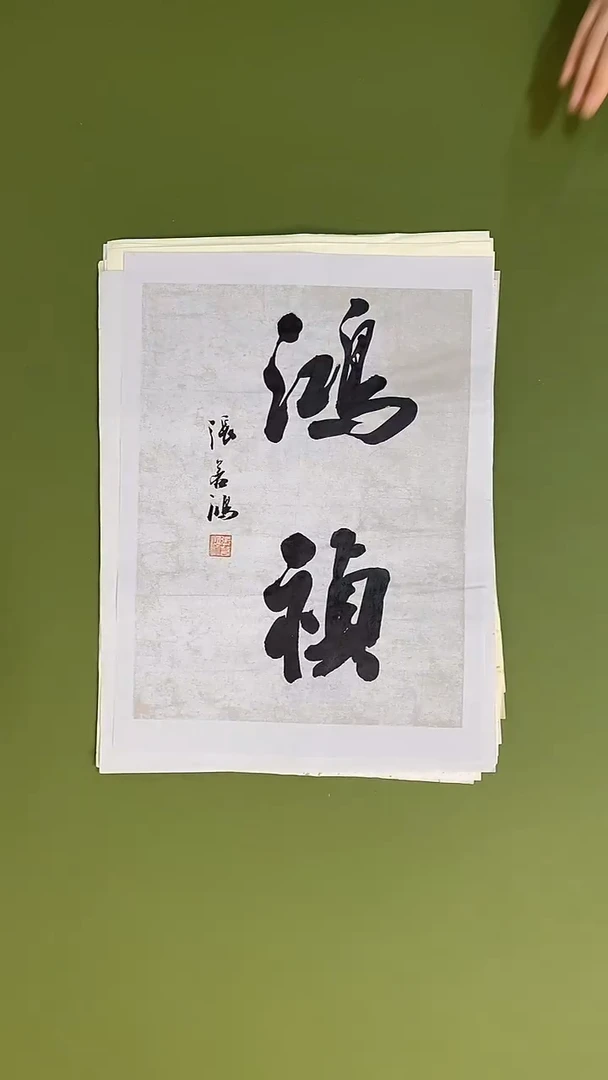 鴻禎
張若鴻